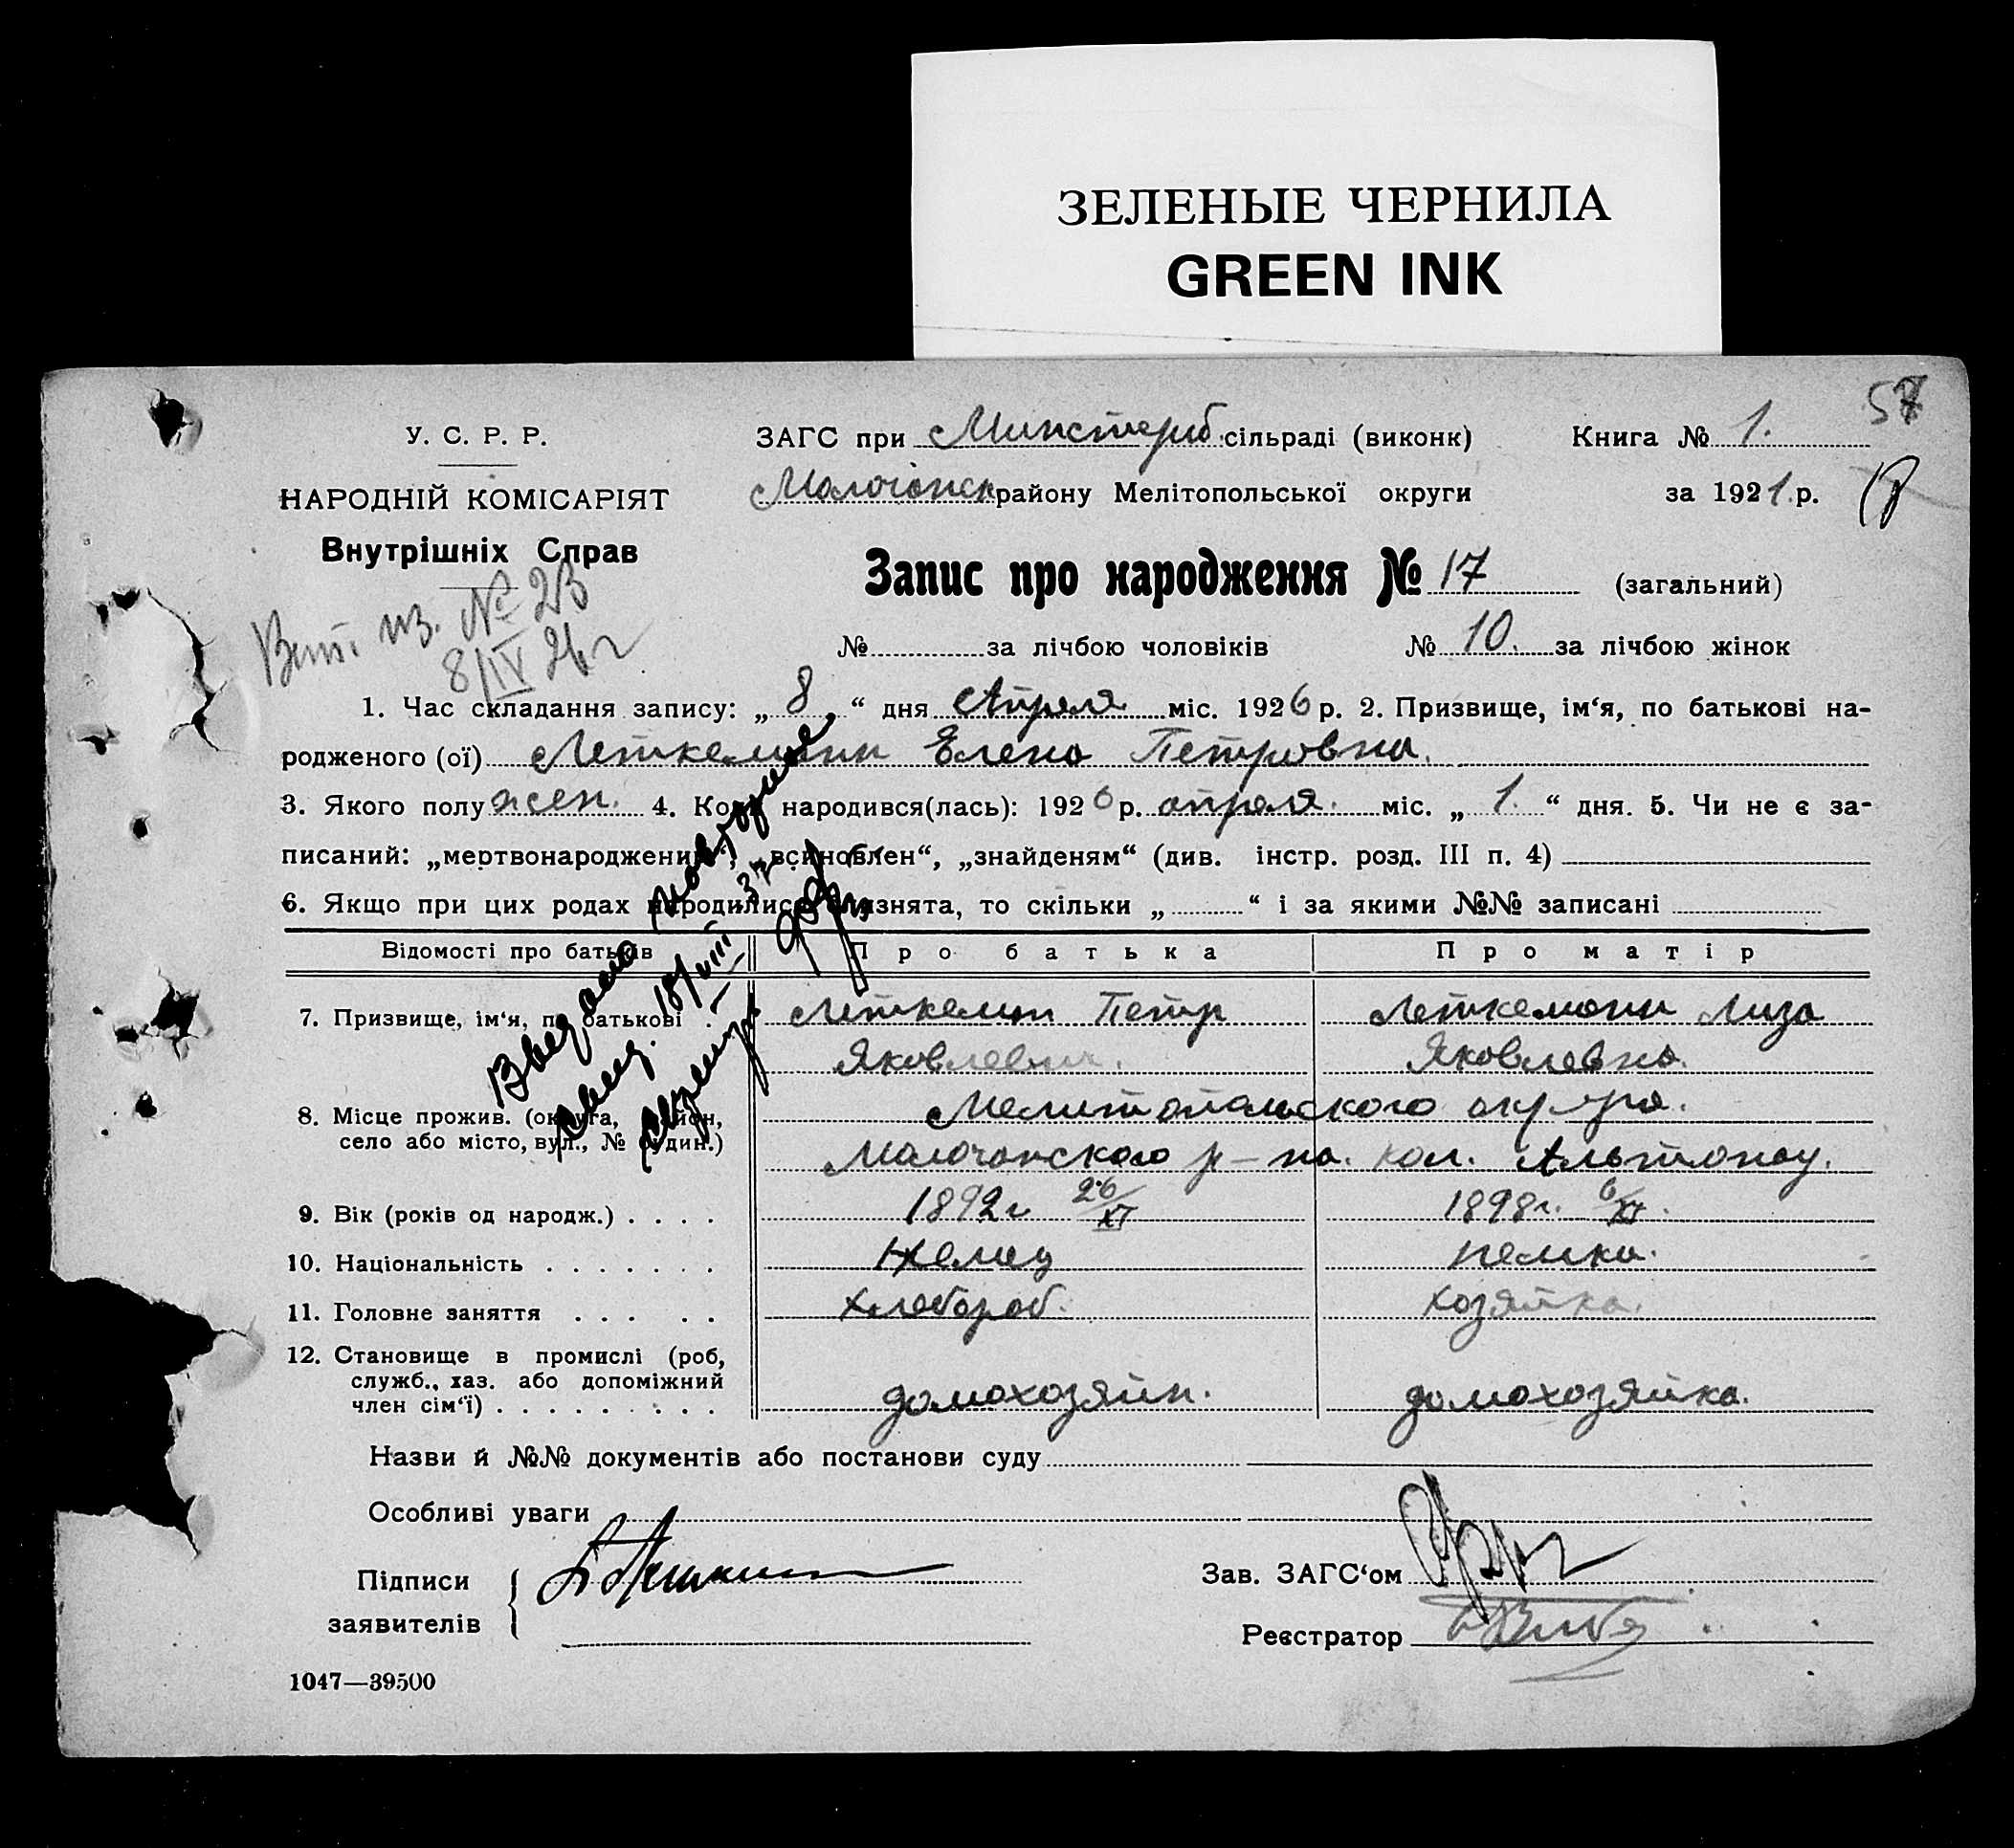 ЗЕЛЕНЫЕ ЧЕРНИЛА
GREEN INK
57
У. С. Р. Р.
ЗАГС при Минстерб. сільраді (виконк)
Книга № 1.
НАРОДНІЙ КОМІСАРІЯТ
Молочанск району Мелітопольської округи
за 1921 р.
Внутрішніх Справ
Запис про народження № 17 (загальний)
№ за лічбою чоловіків № 10. за лічбою жінок
из. № 23
8/IV 26 г
1. Час складання запису: „ 8 “ дня Апреля міс. 1926 р. 2. Призвище, ім‘я, по батькові на-
родженого (ої) Леткеманн Елена Петровна.
3. Якого полу жен. 4. Коли народився(лась): 1926 р. апреля. міс. „ 1. “ дня. 5. Чи не є за-
писаний: „мертвонароджений“, „всиновлен“, „знайденям“ (див. інстр. розд. III п. 4)
6. Якщо при цих родах народилися близнята, то скільки „ “ і за якими №№ записані
Выдано повторное
свид. 18/VIII 37
Відомості про батьків
Про батька
Про матір
7. Призвище, ім‘я, по батькові .
Леткеман Петр
Яковлевич.
Леткеманн Лиза
Яковлевна.
8. Місце прожив. (округа, район,
село або місто, вул., № будин.)
Мелитопольского округа.
Молочанского р-на. кол. Альтонау.
9. Вік (років од народж.) . . . .
1892 г 26/XI
1898 г. 6/XI.
10. Національність . . . . . . .
Немец
немка.
11. Головне заняття . . . . .
хлебороб.
хозяйка.
12. Становище в промислі (роб,
служб., хаз. або допоміжний
член сім‘ї) . . . . . . . . .
домохозяин.
домохозяйка.
Назви й №№ документів або постанови суду
Особливі уваги
Підписи
заявителів
Зав. ЗАГС‘ом
Реєстратор
1047—39500